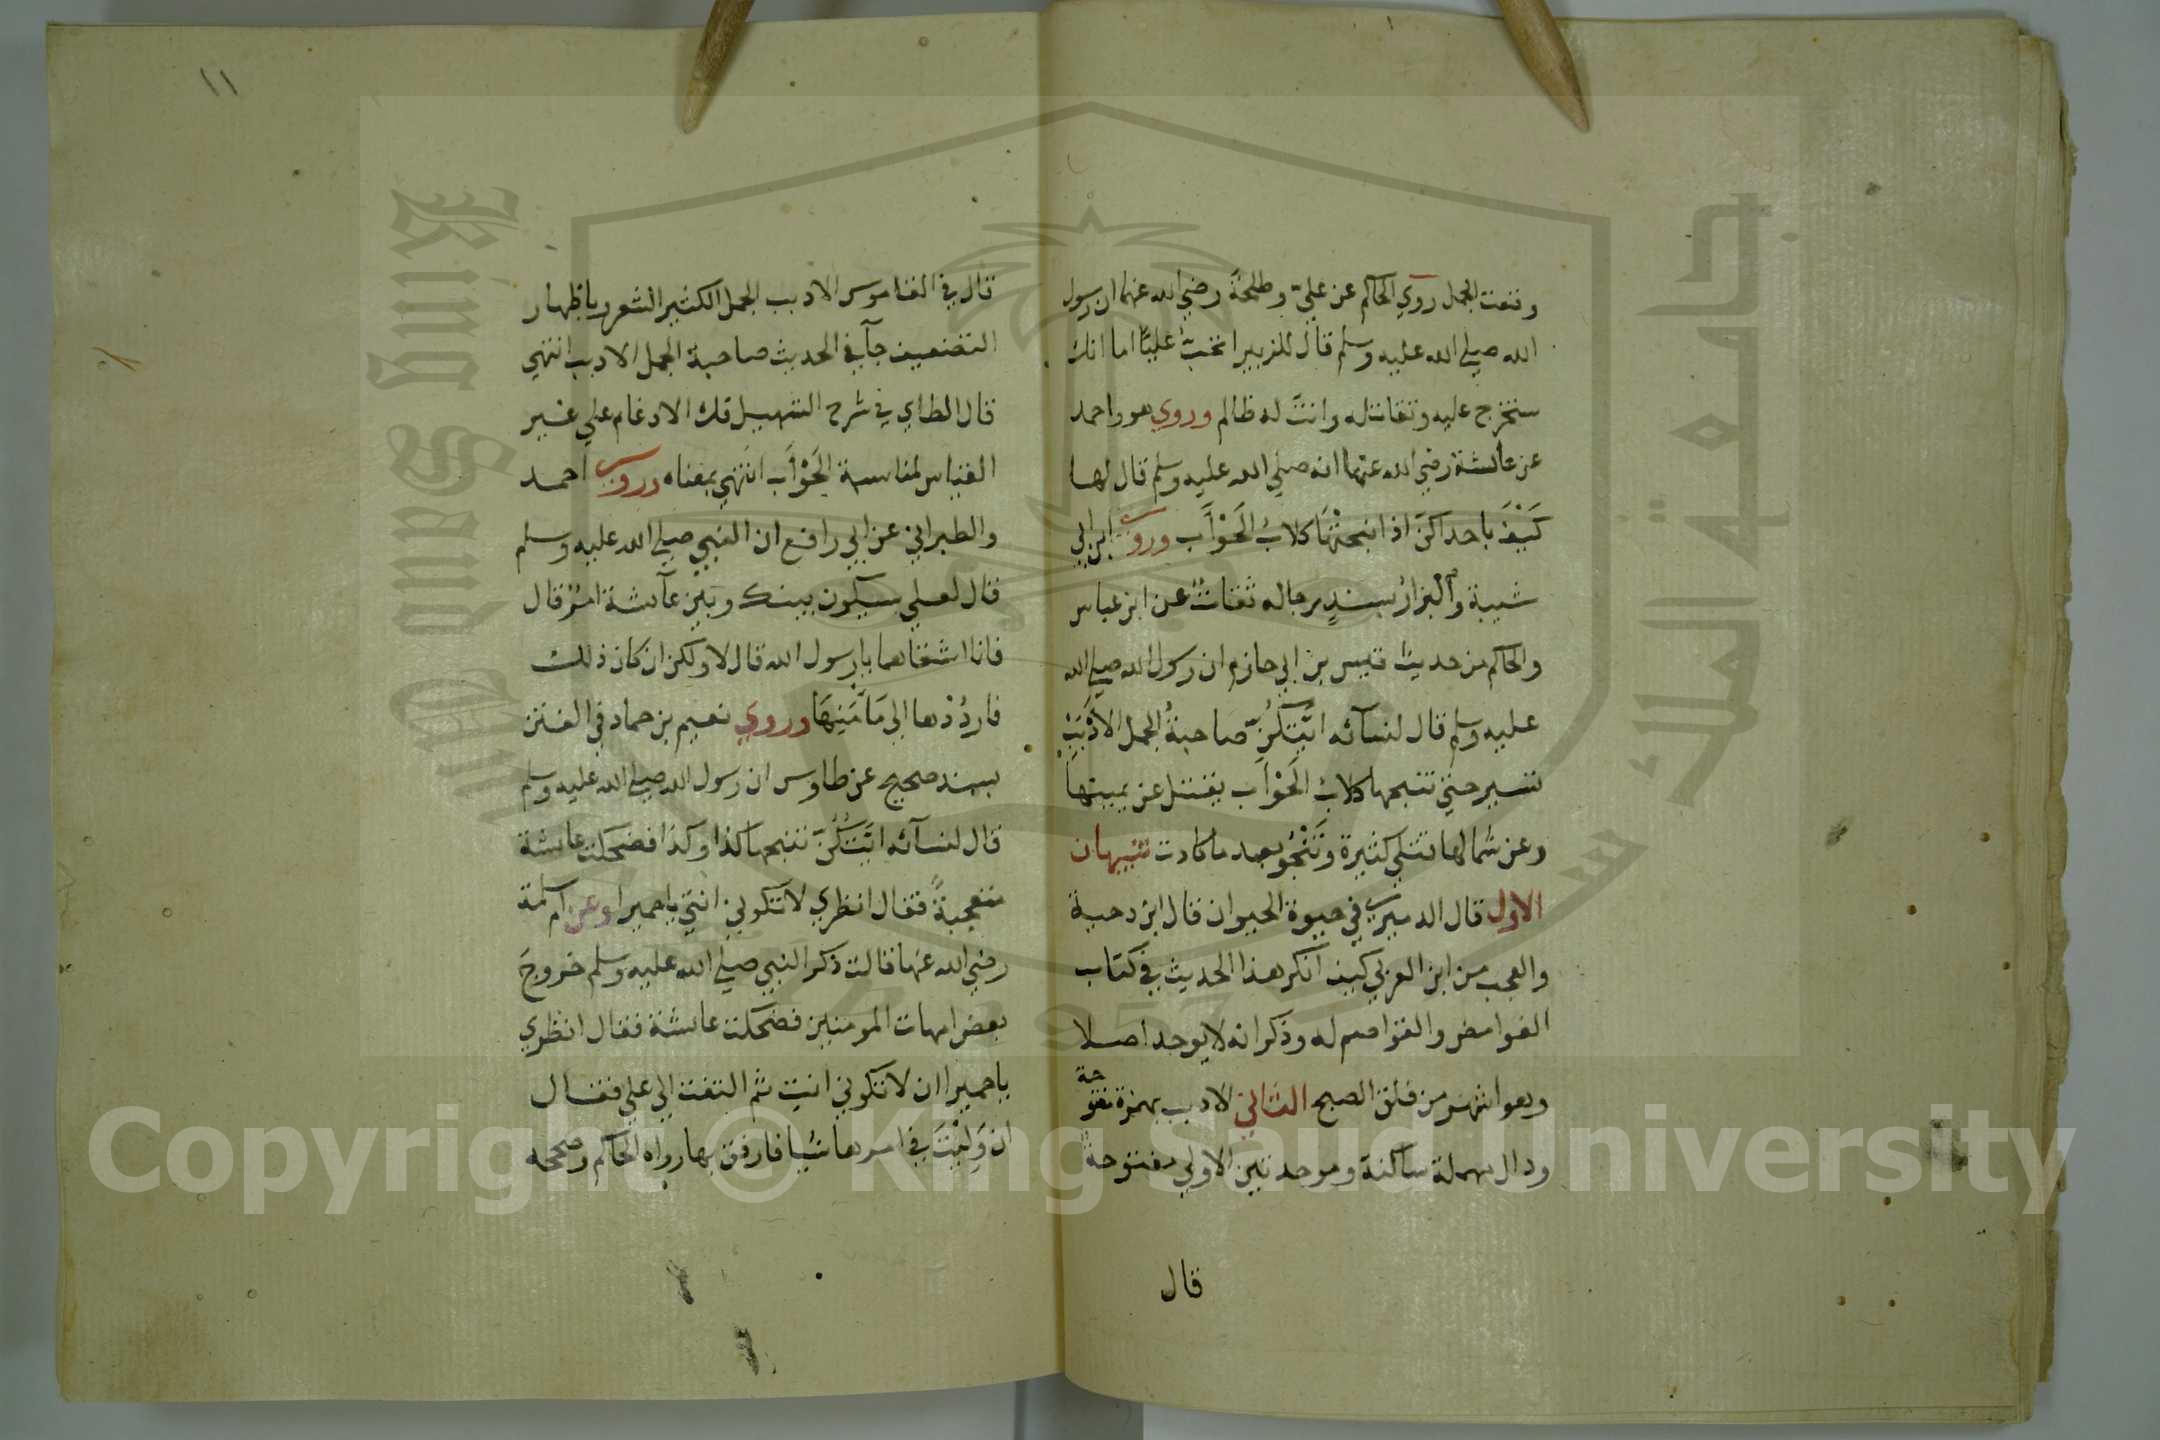 وقعت الجمل روي الحاكم عن علي وطلحة رضي الله عنهما ان رسول
الله صلي الله عليه وسلم قال للزبير اتحب عليا اما انك
ستخرج عليه وتقاتله وانت له ظالم وروي هو واحمد
عن عائشة رضي الله عنها انه صلي الله عليه وسلم قال لها
كَيْفَ باحداكنّ اذا نبحتْهَا كلابُ الحَوْأَب وروي ابن ابي
شيبة والبزارُ بسندٍ رجاله ثقاتٌ عن ابن عباس
والحاكم من حديث قيس بن ابي حازم ان رسول الله صلي الله
عليه وسلم قال لنسآئه ايّتكُنّ صاحبةُ الجمل الأَدْبَبِ
تسير حتي تنبحها كلابُ الحَوْأَب يقتل عن يمينها
وعن شمالها قتلي كثيرة وتَنْجُو بعد ما كادت تنبيهان
الاول قال الدميري في حيوة الحيوان قال ابن دحية
والعجب من ابن العربي كيف انكر هذا الحديث في كتاب
الغوامض والقواصم له وذكر انه لا يوجد اصلا
وهو اشهر من فلق الصبح الثاني الادبب بهمزة مفتوحة
ودال مهملة ساكنة وموحدتين الاولي مفتوحة
قال
١١
قال في القاموس الادبب الجمل الكثير الشعر وباظهار
التضعيف جآ في الحديث صاحبة الجمل الادبب انتهي
قال الطاي في شرح التسهيل فك الادغام علي غير
القياس لمناسبة الحَوْأَب انتهي بمعناه وروي احمد
والطبراني عن ابي رافع ان النبي صلي الله عليه وسلم
قال لعلي سيكون بينك وبين عآئشة امرٌ قال
فانا اشقاهما يا رسول الله قال لا ولكن ان كان ذلك
فاردُدْها الي مَأْمَنِهَا وروي نعيم بن حماد في الفتن
بسند صحيح عن طاوس ان رسول الله صلي الله عليه وسلم
قال لنسآئه ايّتكُنّ تنبحها كذا وكذا فضحكت عائشة
متعجبةً فقال انظري لا تكوني انتي يا حميرا وعن ام سلمة
رضي الله عنها قالت ذكر النبي صلي الله عليه وسلم خروجَ
بعض امهات المومنين فضحكت عائشة فقال انظري
يا حميرا ان لا تكوني انتِ ثم التفت الي علي فقال
ان وَلِيْتَ في امرها شيا فارفق بها رواه الحاكم وصححه
King Saud University
جامعة الملك سعود
1957
Copyright © King Saud University